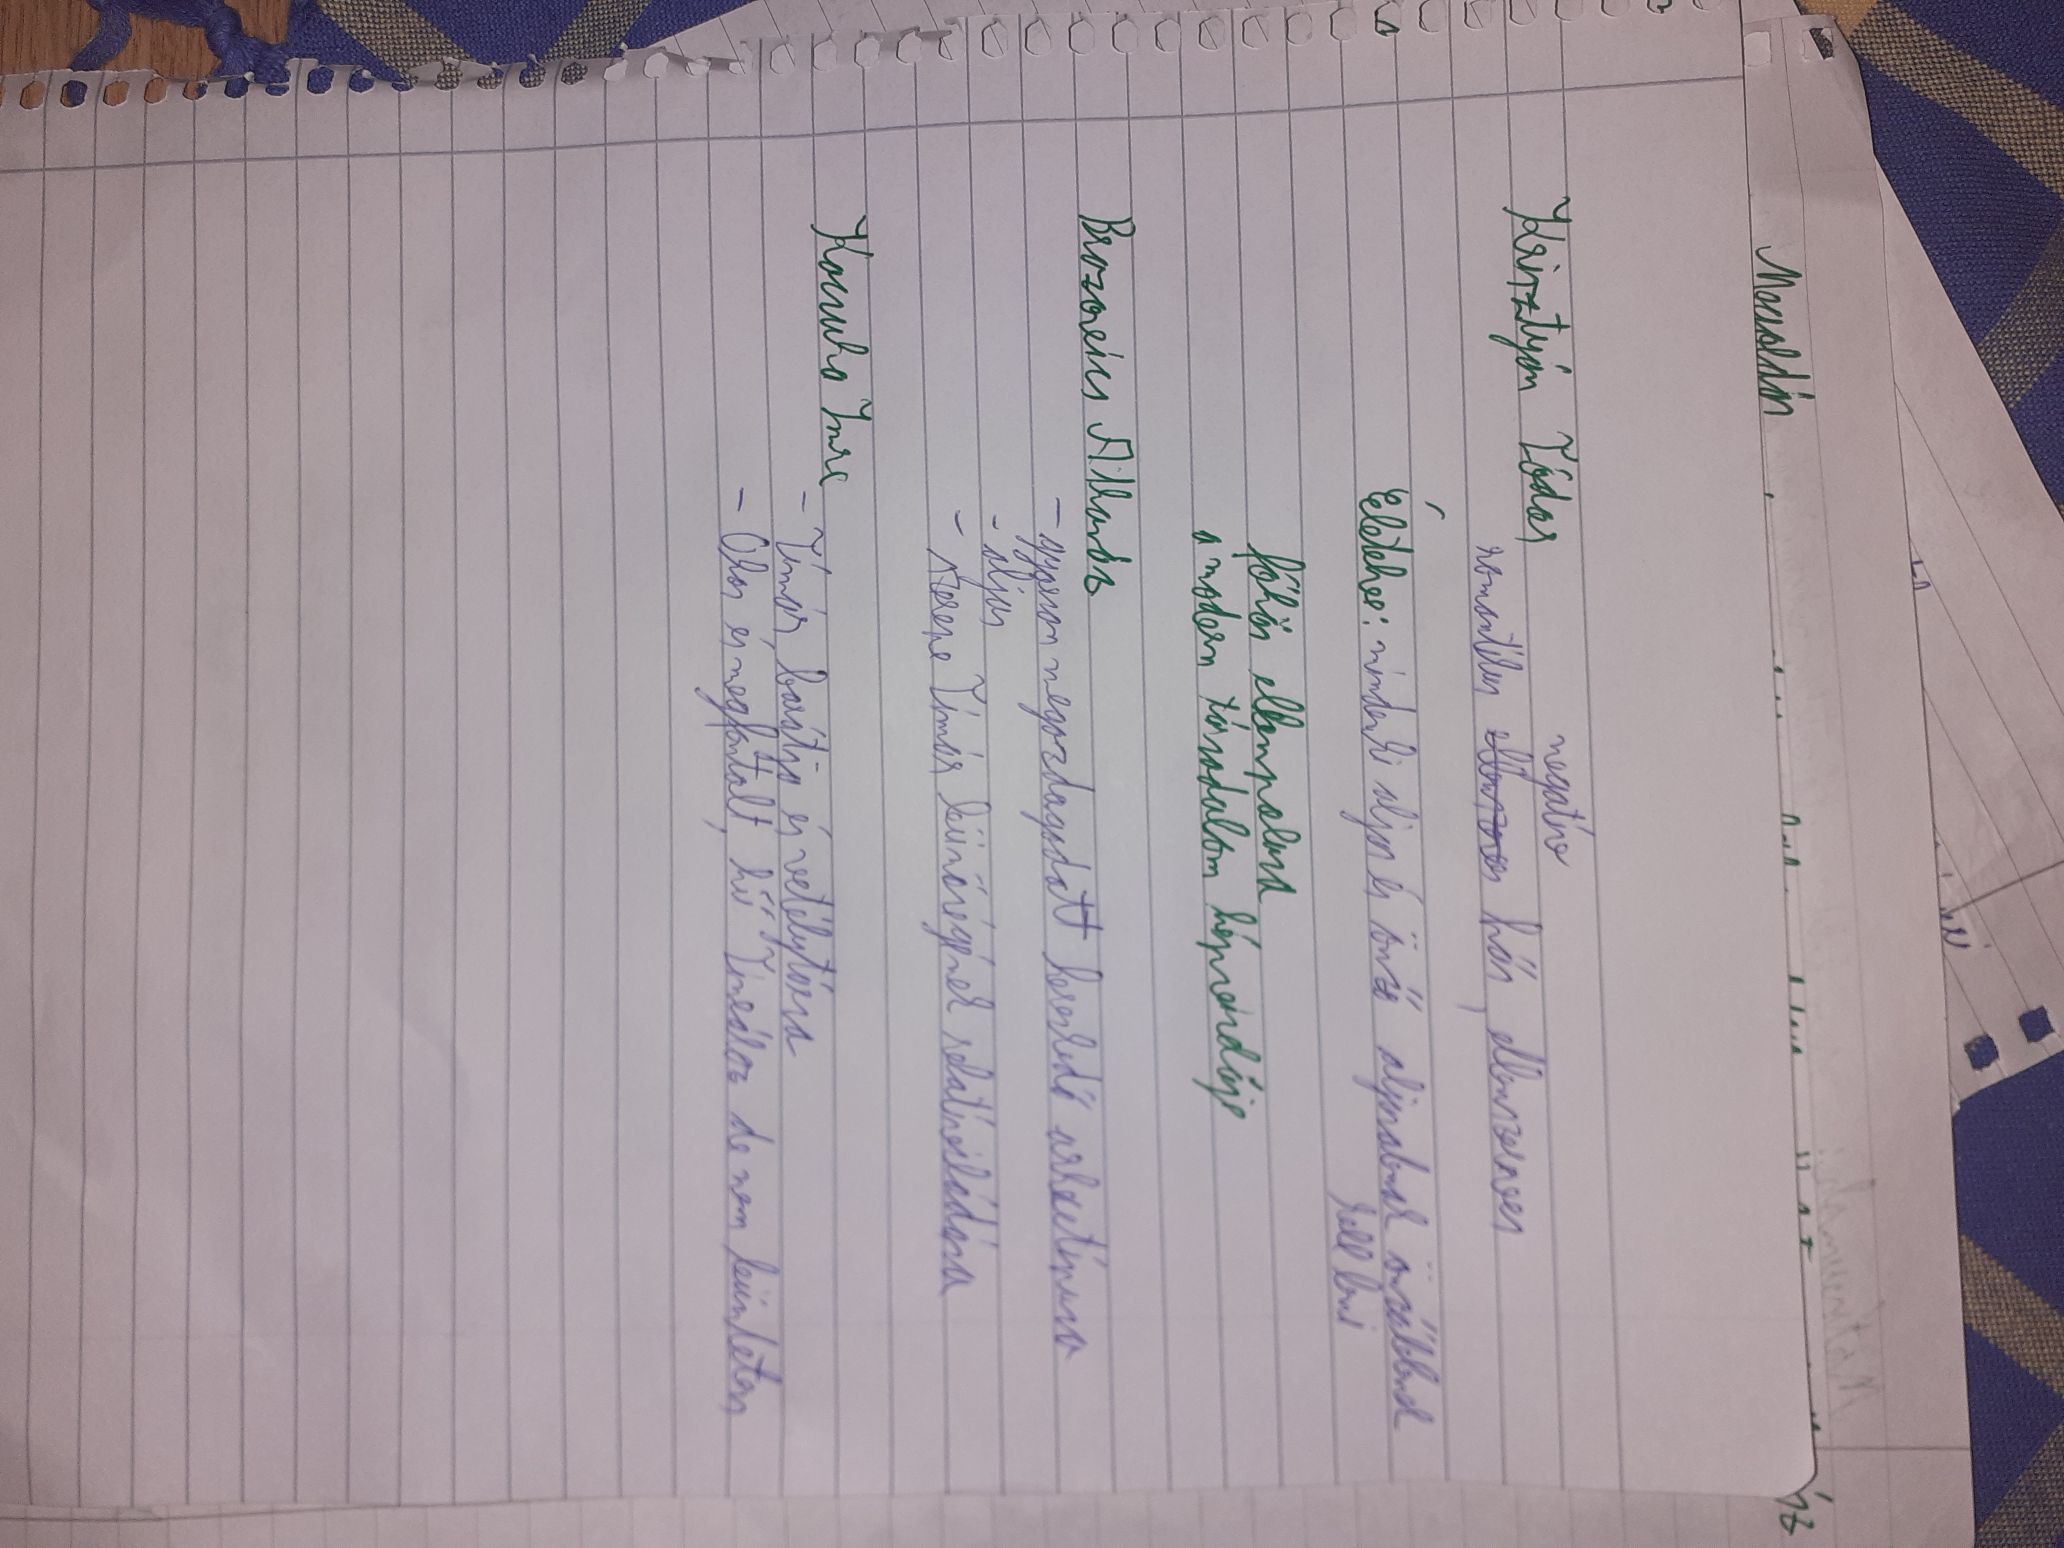 Megoldás
Krisztyán Tódor
negatív
romantikus ellenszenves hős, ellenszenves
Életelve: mindenki aljas és önző aljasabnak önzőbbnek
kell leni
főhős ellenpolusa
a modern társadalom képviselője
Brazovics Athanáz
- gyorsan megazdagodatt kereskedő arhetípusa
- aljas
- szerepe Tímár bűnöségének relatívizálására
Kacsuka Imre
- Tímár barátja és vetélytársa
- Okos és megfontolt, hű Tímeához de nem büntelen